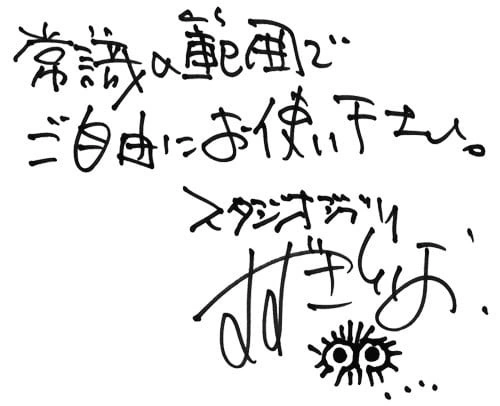 常識の範囲で
ご自由にお使い下さい。
スタジオジブリ
すずきとしお